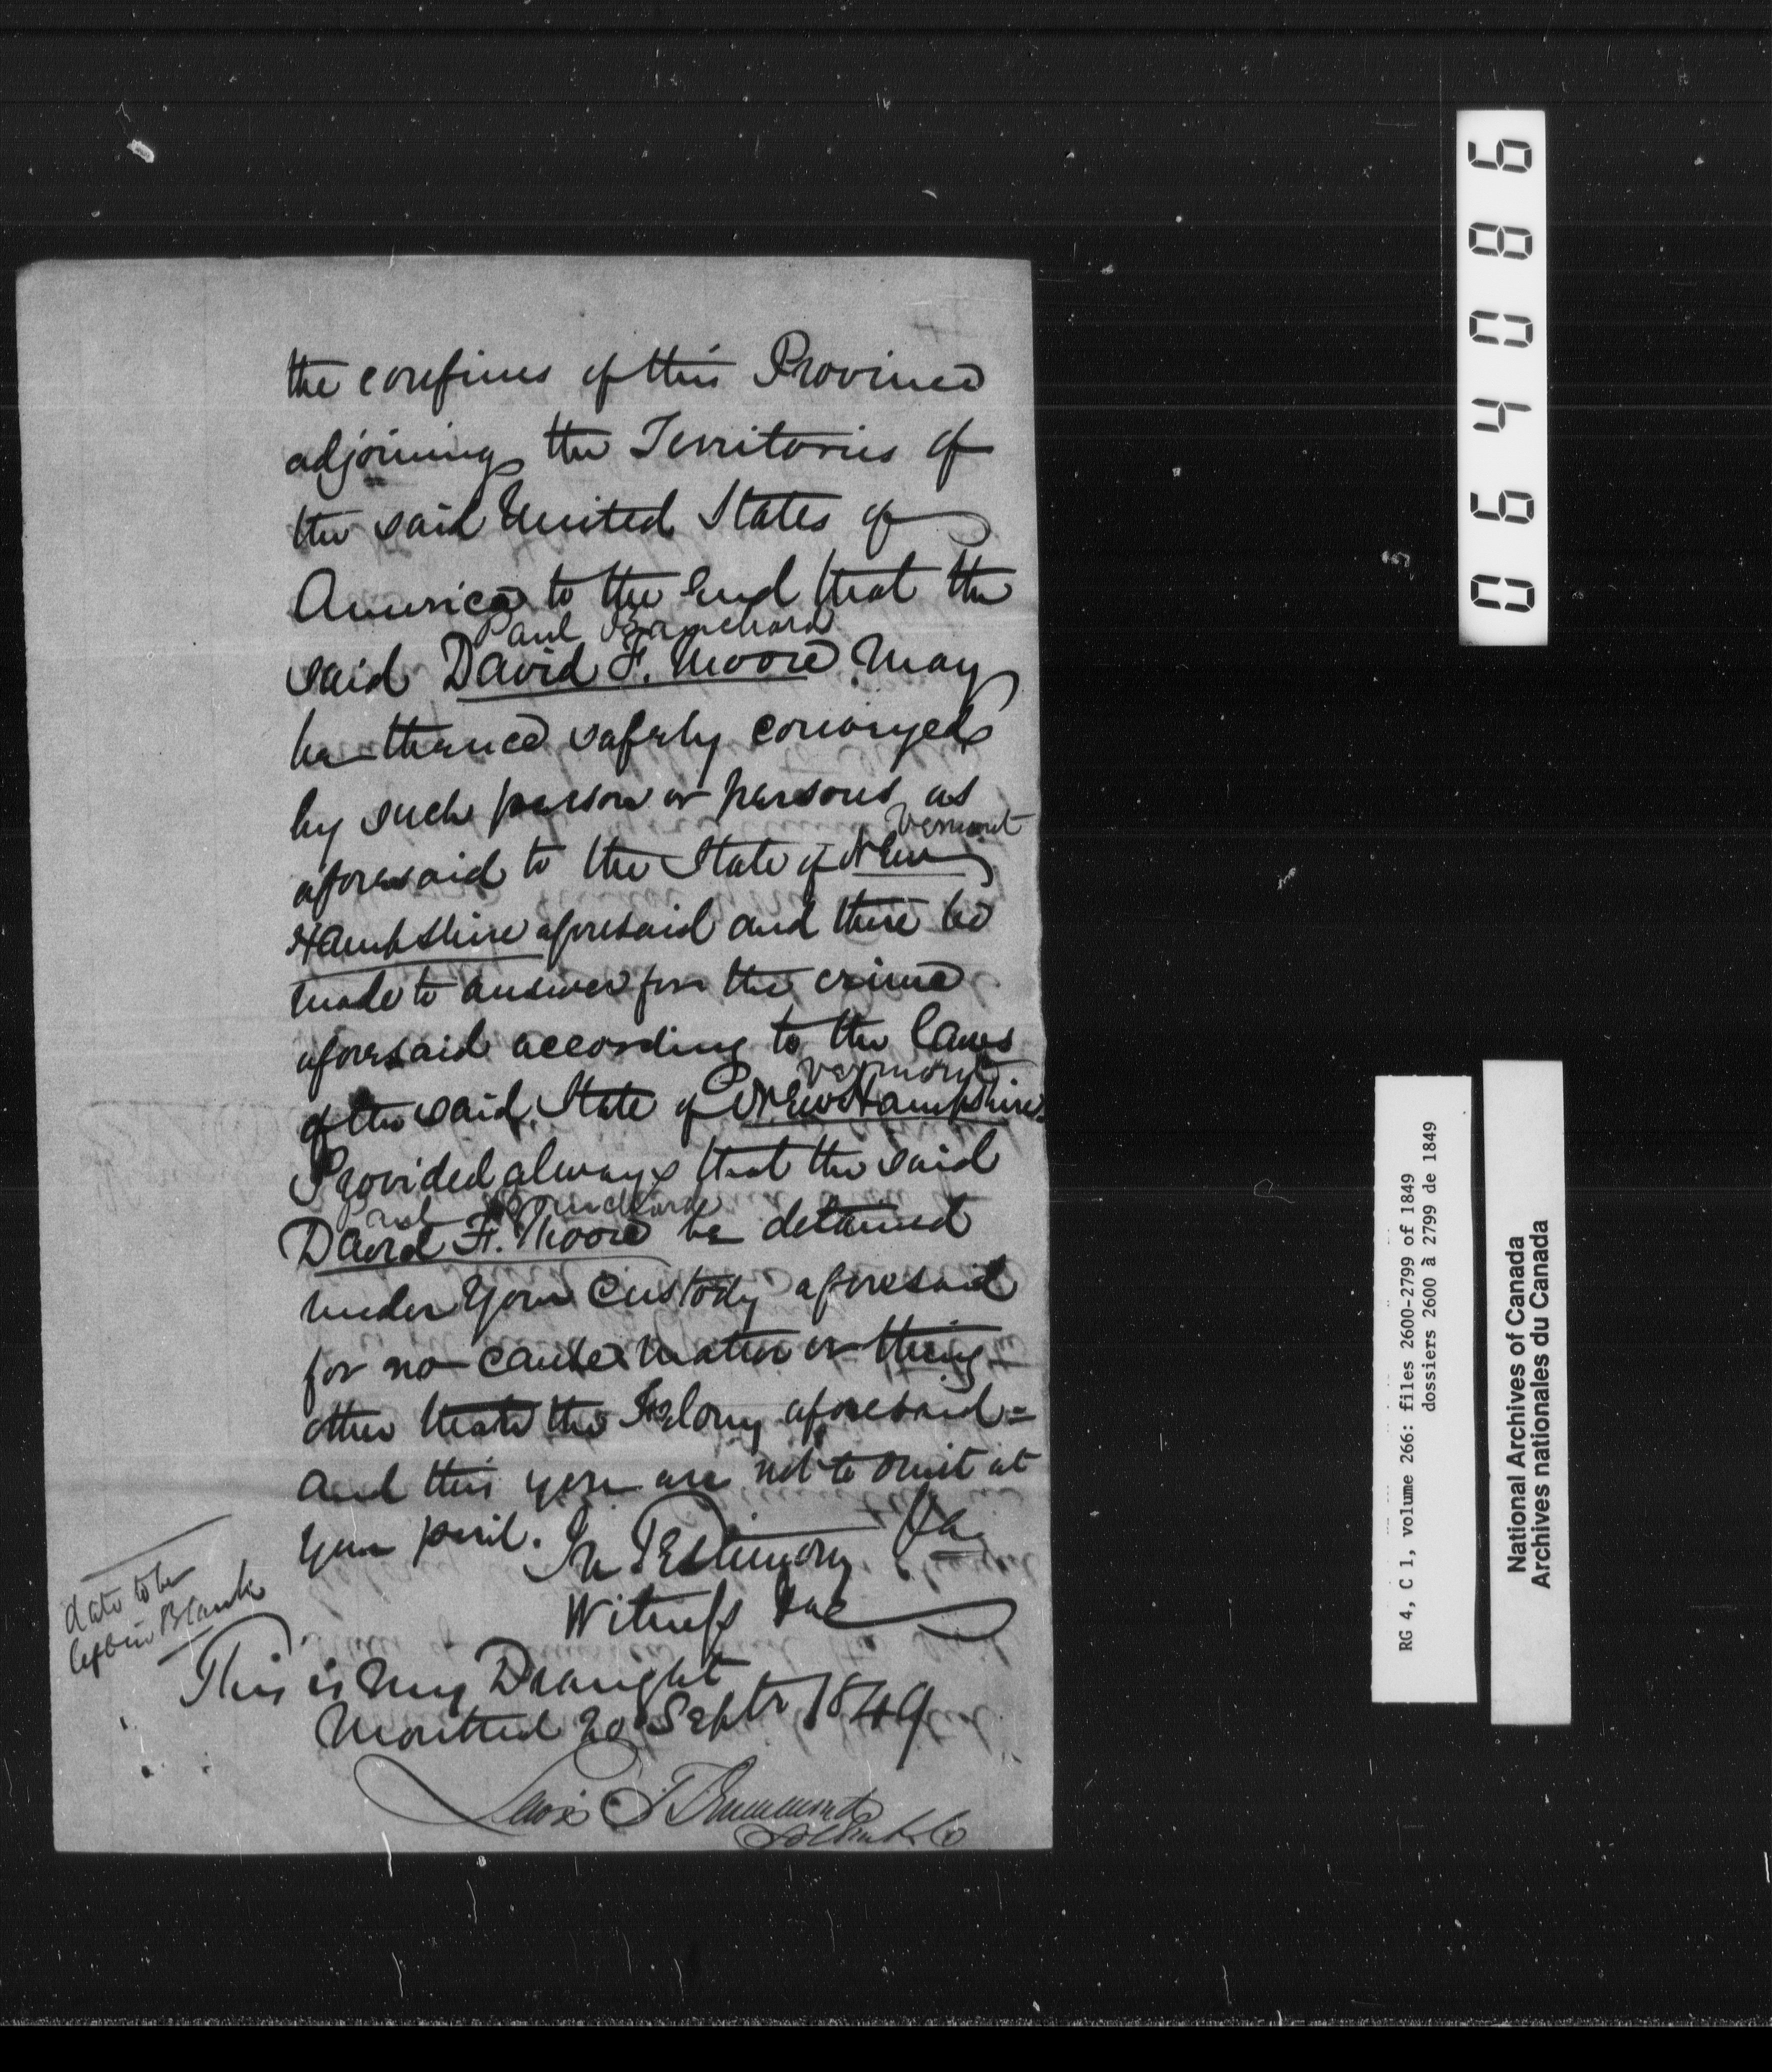 the confines of this Province
adjoining the Territories of
the said United States of
America to the End that the
Paul Blanchard
said David F. Moore may
be thence safely conveyed
by such person or persons as
Vermont
aforesaid to the State of New
Hampshire aforesaid and there be
made to answer for the crime
aforesaid according to the laws
Vermont
of the said State of New Hampshire
Provided always that the said
Paul Blanchard
David F. Moore be detained
under your custody aforesaid
for no cause matter or thing
other than the Felony aforesaid =
and this you are not to omit at
your peril.
In Testimony
Witness &ac
date to be
left in Blank
This is my Draught
Montreal 20 Septr 1849
Lewis T Drummond
0 6 4 0 8 6
RG 4, C 1, volume 266: files 2600-2799 of 1849
dossiers 2600 à 2799 de 1849
National Archives of Canada
Archives nationales du Canada